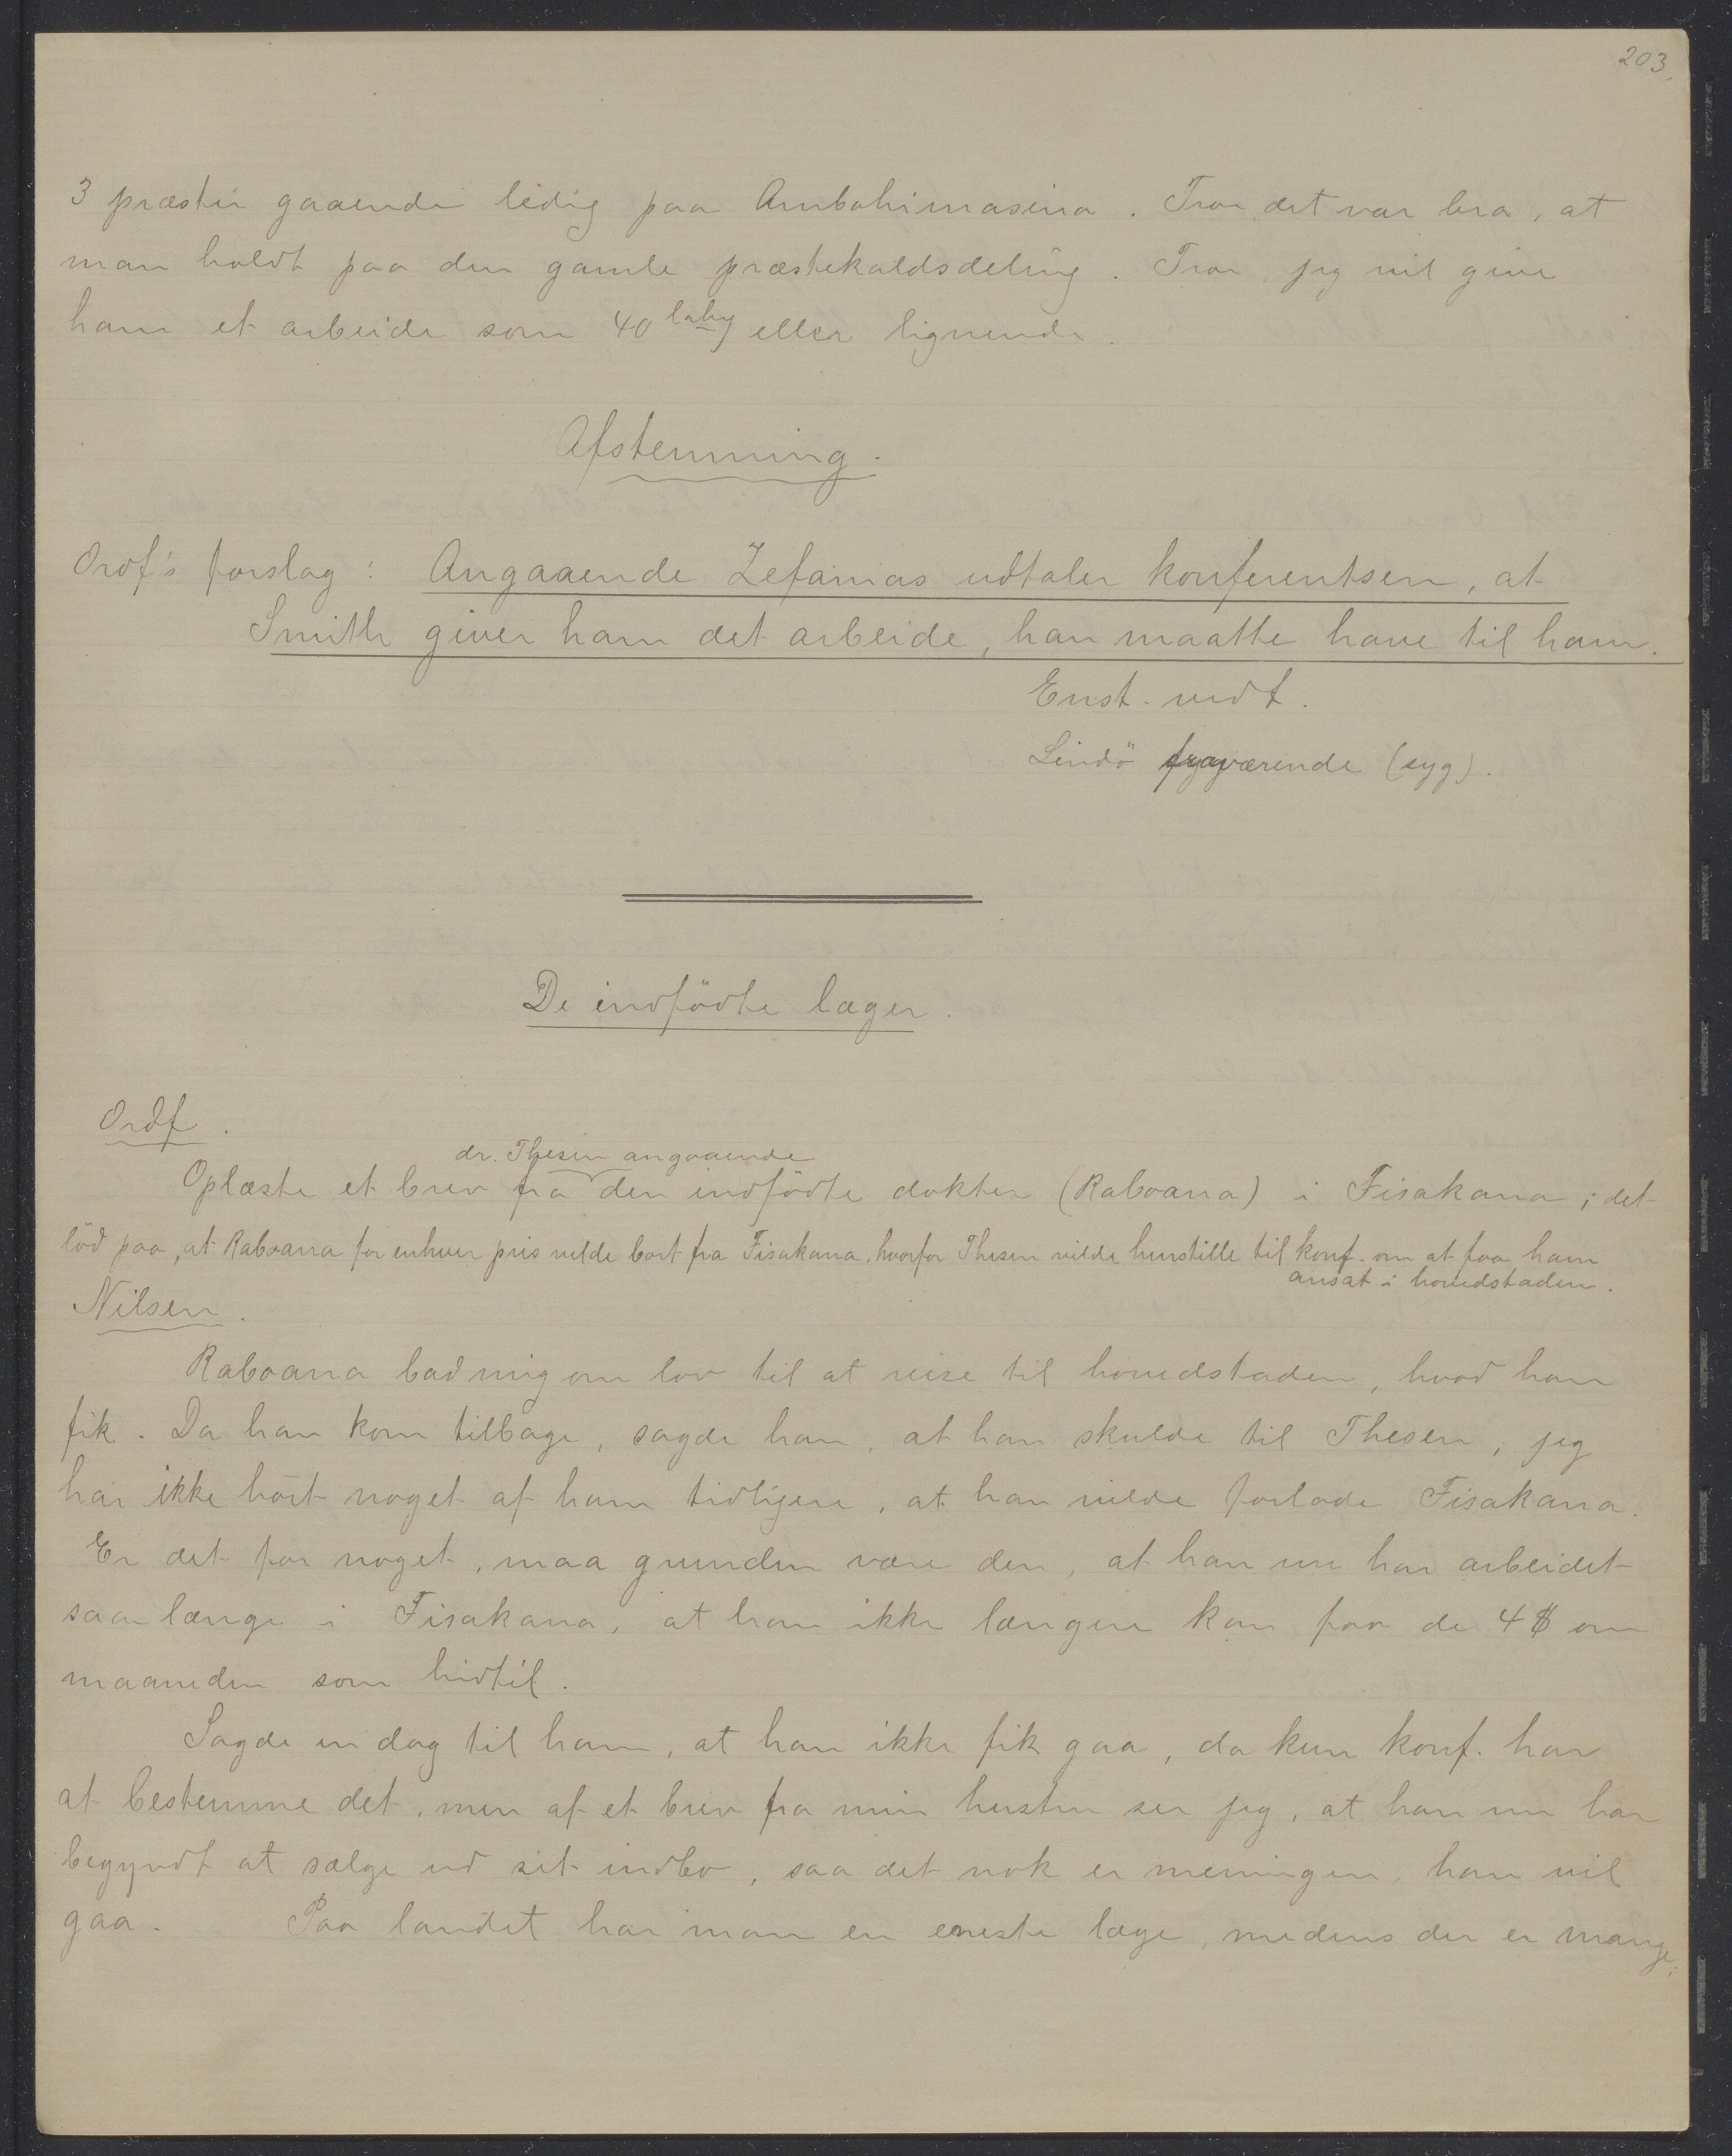 203.
3 præster gaaende ledig paa Ambohimasina. Tror det var bra, at
man holdt paa den gamle præstekaldsdeling. Tror, jeg vil give
ham et arbeide som 40 lahy eller lignende.
Afstemning.
Ordf's forslag: Angaaende Zefanias udtaler konferentsen, at
Smith giver ham det arbeide, han maatte have til ham.
Enst. vedt.
Lindö fraværende (syg).
De indfödte læger.
Ordf.
dr. Thesen angaaende
Oplæste et brev fra den indfödte dokter (Raboana) i Fisakana; det
löd paa, at Raboana for enhver pris vilde bort fra Fisakana, hvorfor Thesen vilde henstille til konf. om at faa ham
ansat i hovedstaden.
Nilsen.
Raboana bad mig om lov til at reise til hovedstaden, hvad han
fik. Da han kom tilbage, sagde han, at han skulde til Thesen; jeg
har ikke hört noget af ham tidligere, at han vilde forlade Fisakana.
Er det for noget, maa grunden være den, at han nu har arbeidet
saa længe i Fisakana, at han ikke længere kan faa de 4 $ om
maaneden som hidtil.
Sagde en dag til ham, at han ikke fik gaa, da kun konf. har
at bestemme det, men af et brev fra min hustru ser jeg, at han nu har
begyndt at sælge ud sit indbo, saa det nok er meningen, han vil
gaa. Paa landet har man en eneste læge, medens der er mange,